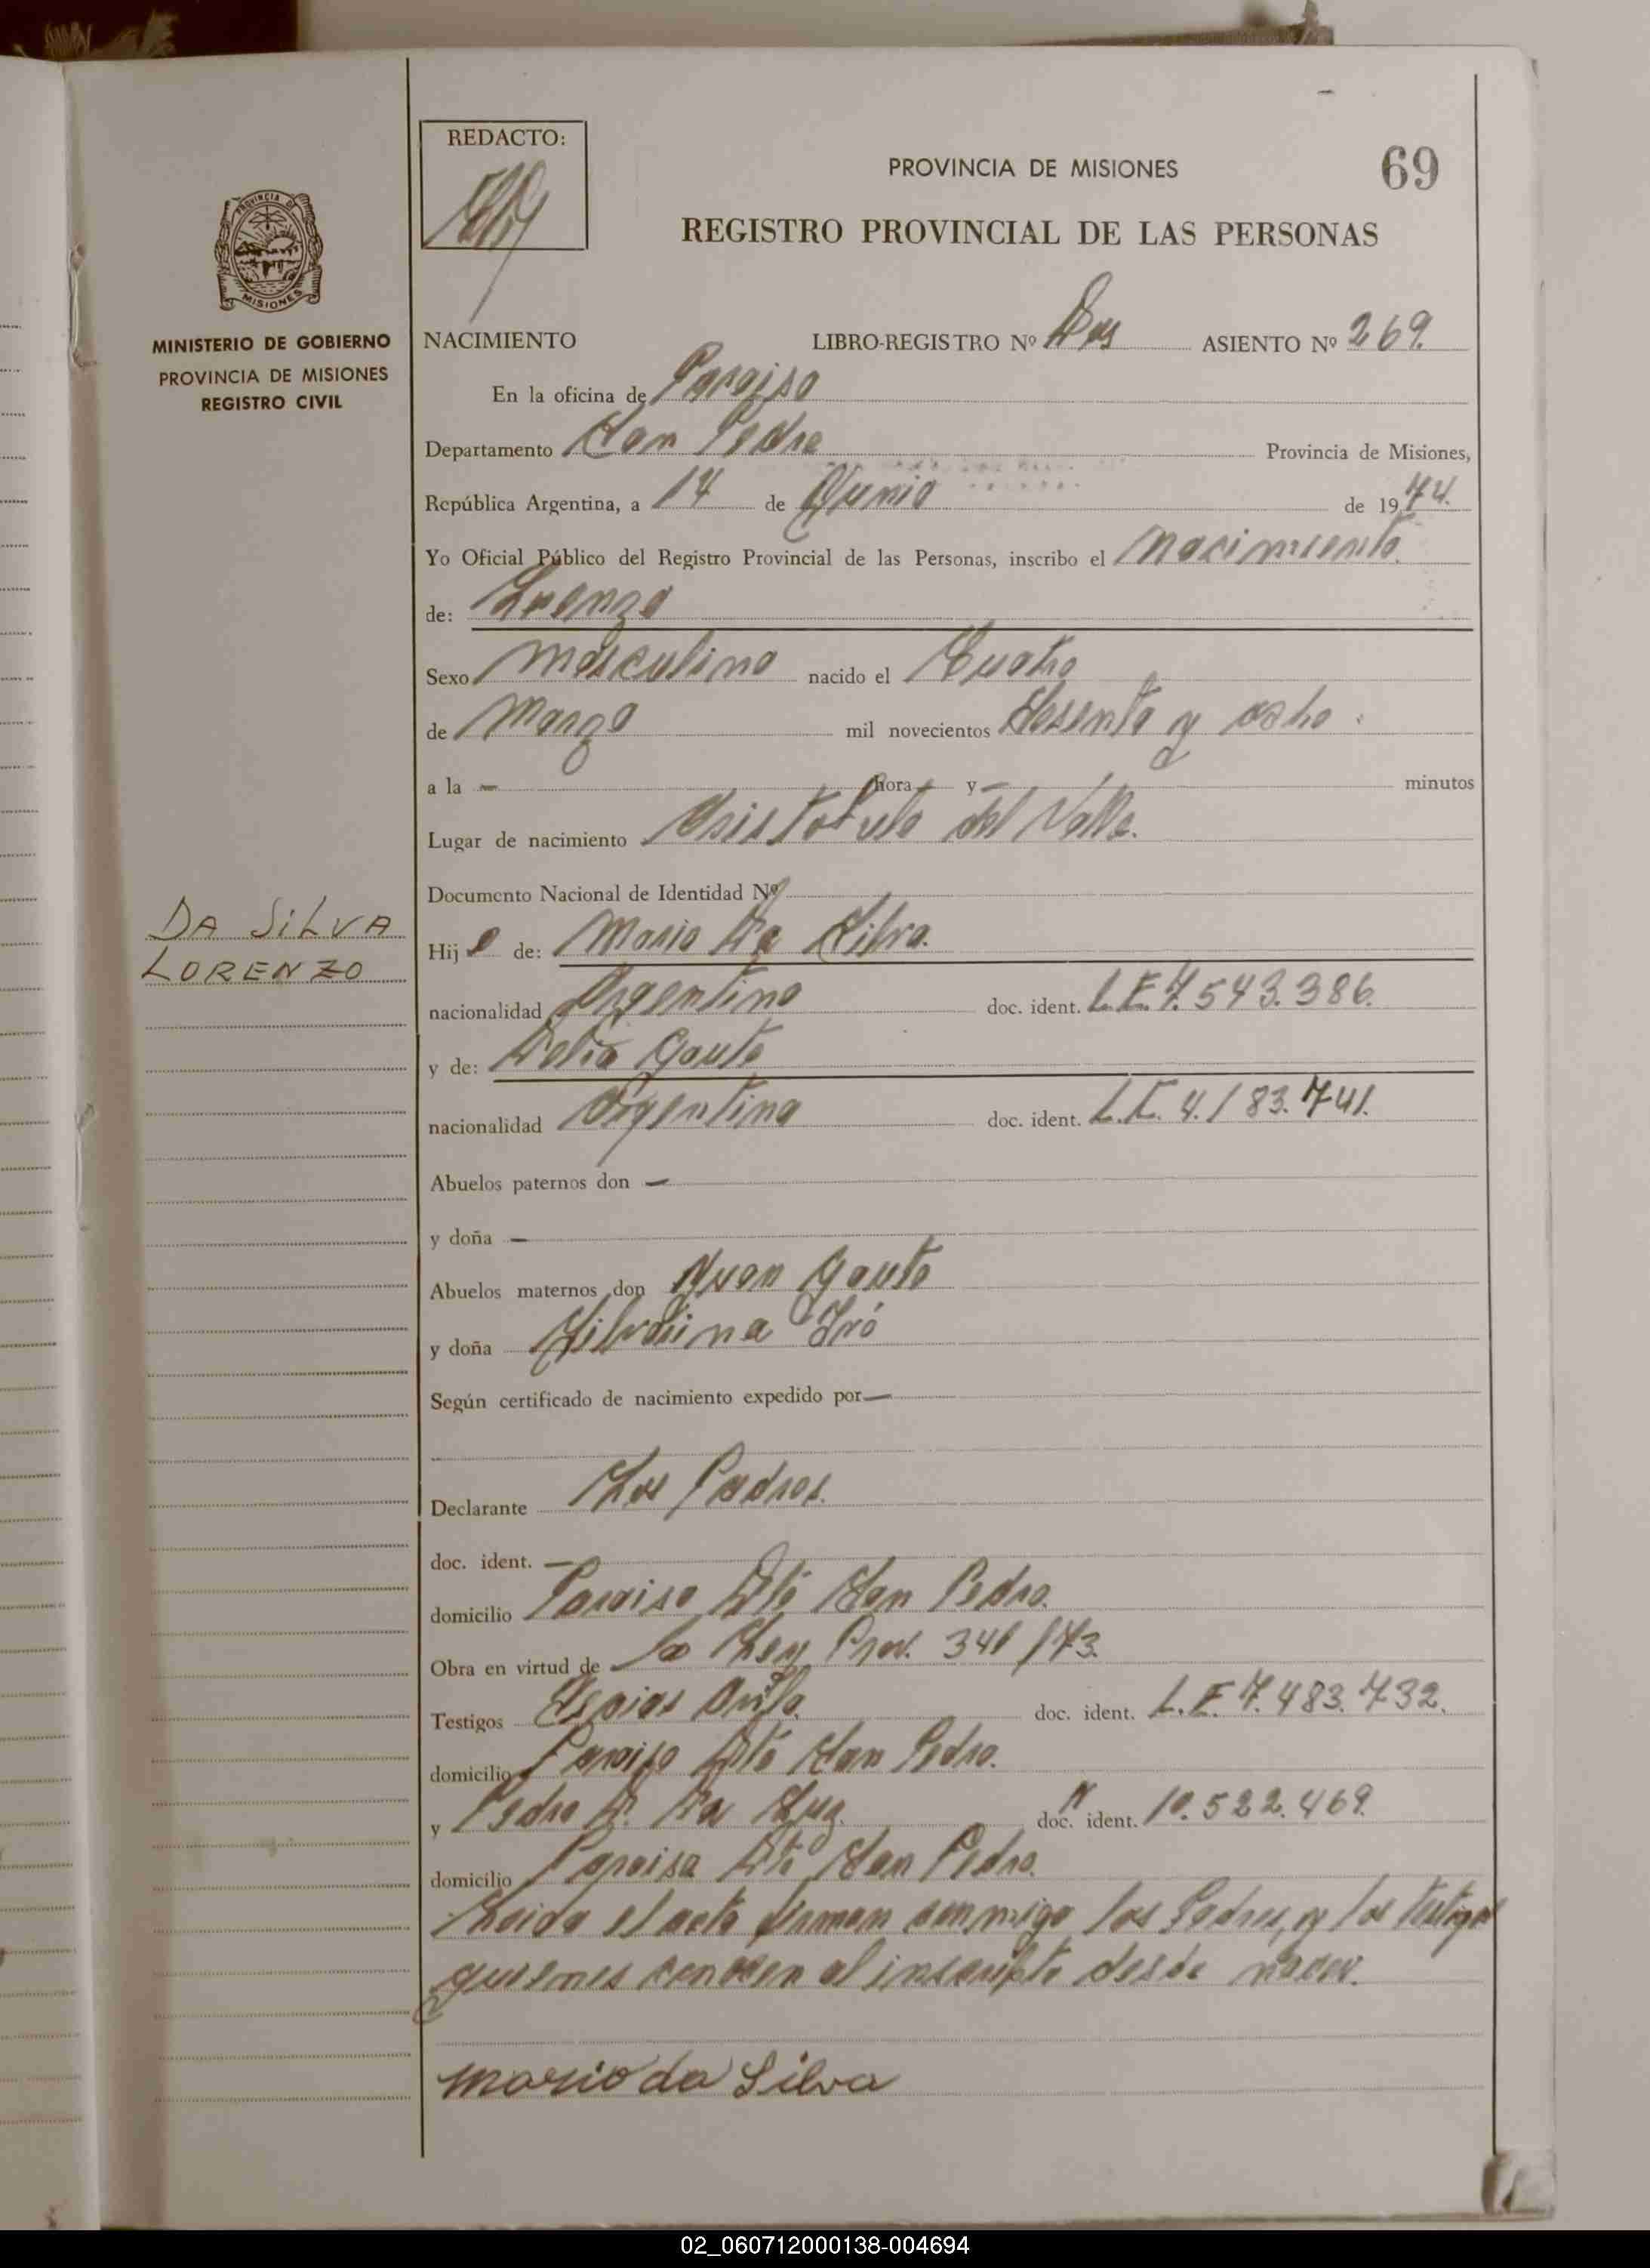 REDACTO:
PROVINCIA DE MISIONES
69
REGISTRO PROVINCIAL DE LAS PERSONAS
PROVINCIA DE
MISIONES
MINISTERIO DE GOBIERNO
PROVINCIA DE MISIONES
REGISTRO CIVIL
NACIMIENTO LIBRO-REGISTRO Nº Dos ASIENTO Nº 269.
En la oficina de Paraiso
Departamento San Pedro Provincia de Misiones,
República Argentina, a 14 de Junio de 1974.
Yo Oficial Público del Registro Provincial de las Personas, inscribo el Nacimiento.
de: Lorenzo
Sexo masculino nacido el Cuatro
de Marzo mil novecientos sesenta y ocho.
a la — hora y — minutos
Lugar de nacimiento Aristobulo del Valle.
Documento Nacional de Identidad Nº
DA SILVA
LORENZO
Hijo de: Mario Da Silva.
nacionalidad Argentino doc. ident. L.E. 7.543.386.
y de: Delia Gauto
nacionalidad Argentina doc. ident. L.C. 4.183.741.
Abuelos paternos don —
y doña —
Abuelos maternos don Juan Gauto
y doña
Según certificado de nacimiento expedido por —
Declarante Los Padres.
doc. ident. —
domicilio Paraiso Dtó San Pedro.
Obra en virtud de la Ley Prov. 341/73.
Testigos doc. ident. L.E. 7.483.732.
domicilio Paraiso Dtó San Pedro.
y Pedro D. Da Luz. doc. ident. 10.522.469.
domicilio Paraiso Dtó San Pedro.
Leida el acta firman conmigo los Padres, y los testigos
quienes conocen al inscripto desde nacer.
Mario da Silva
02_060712000138-004694